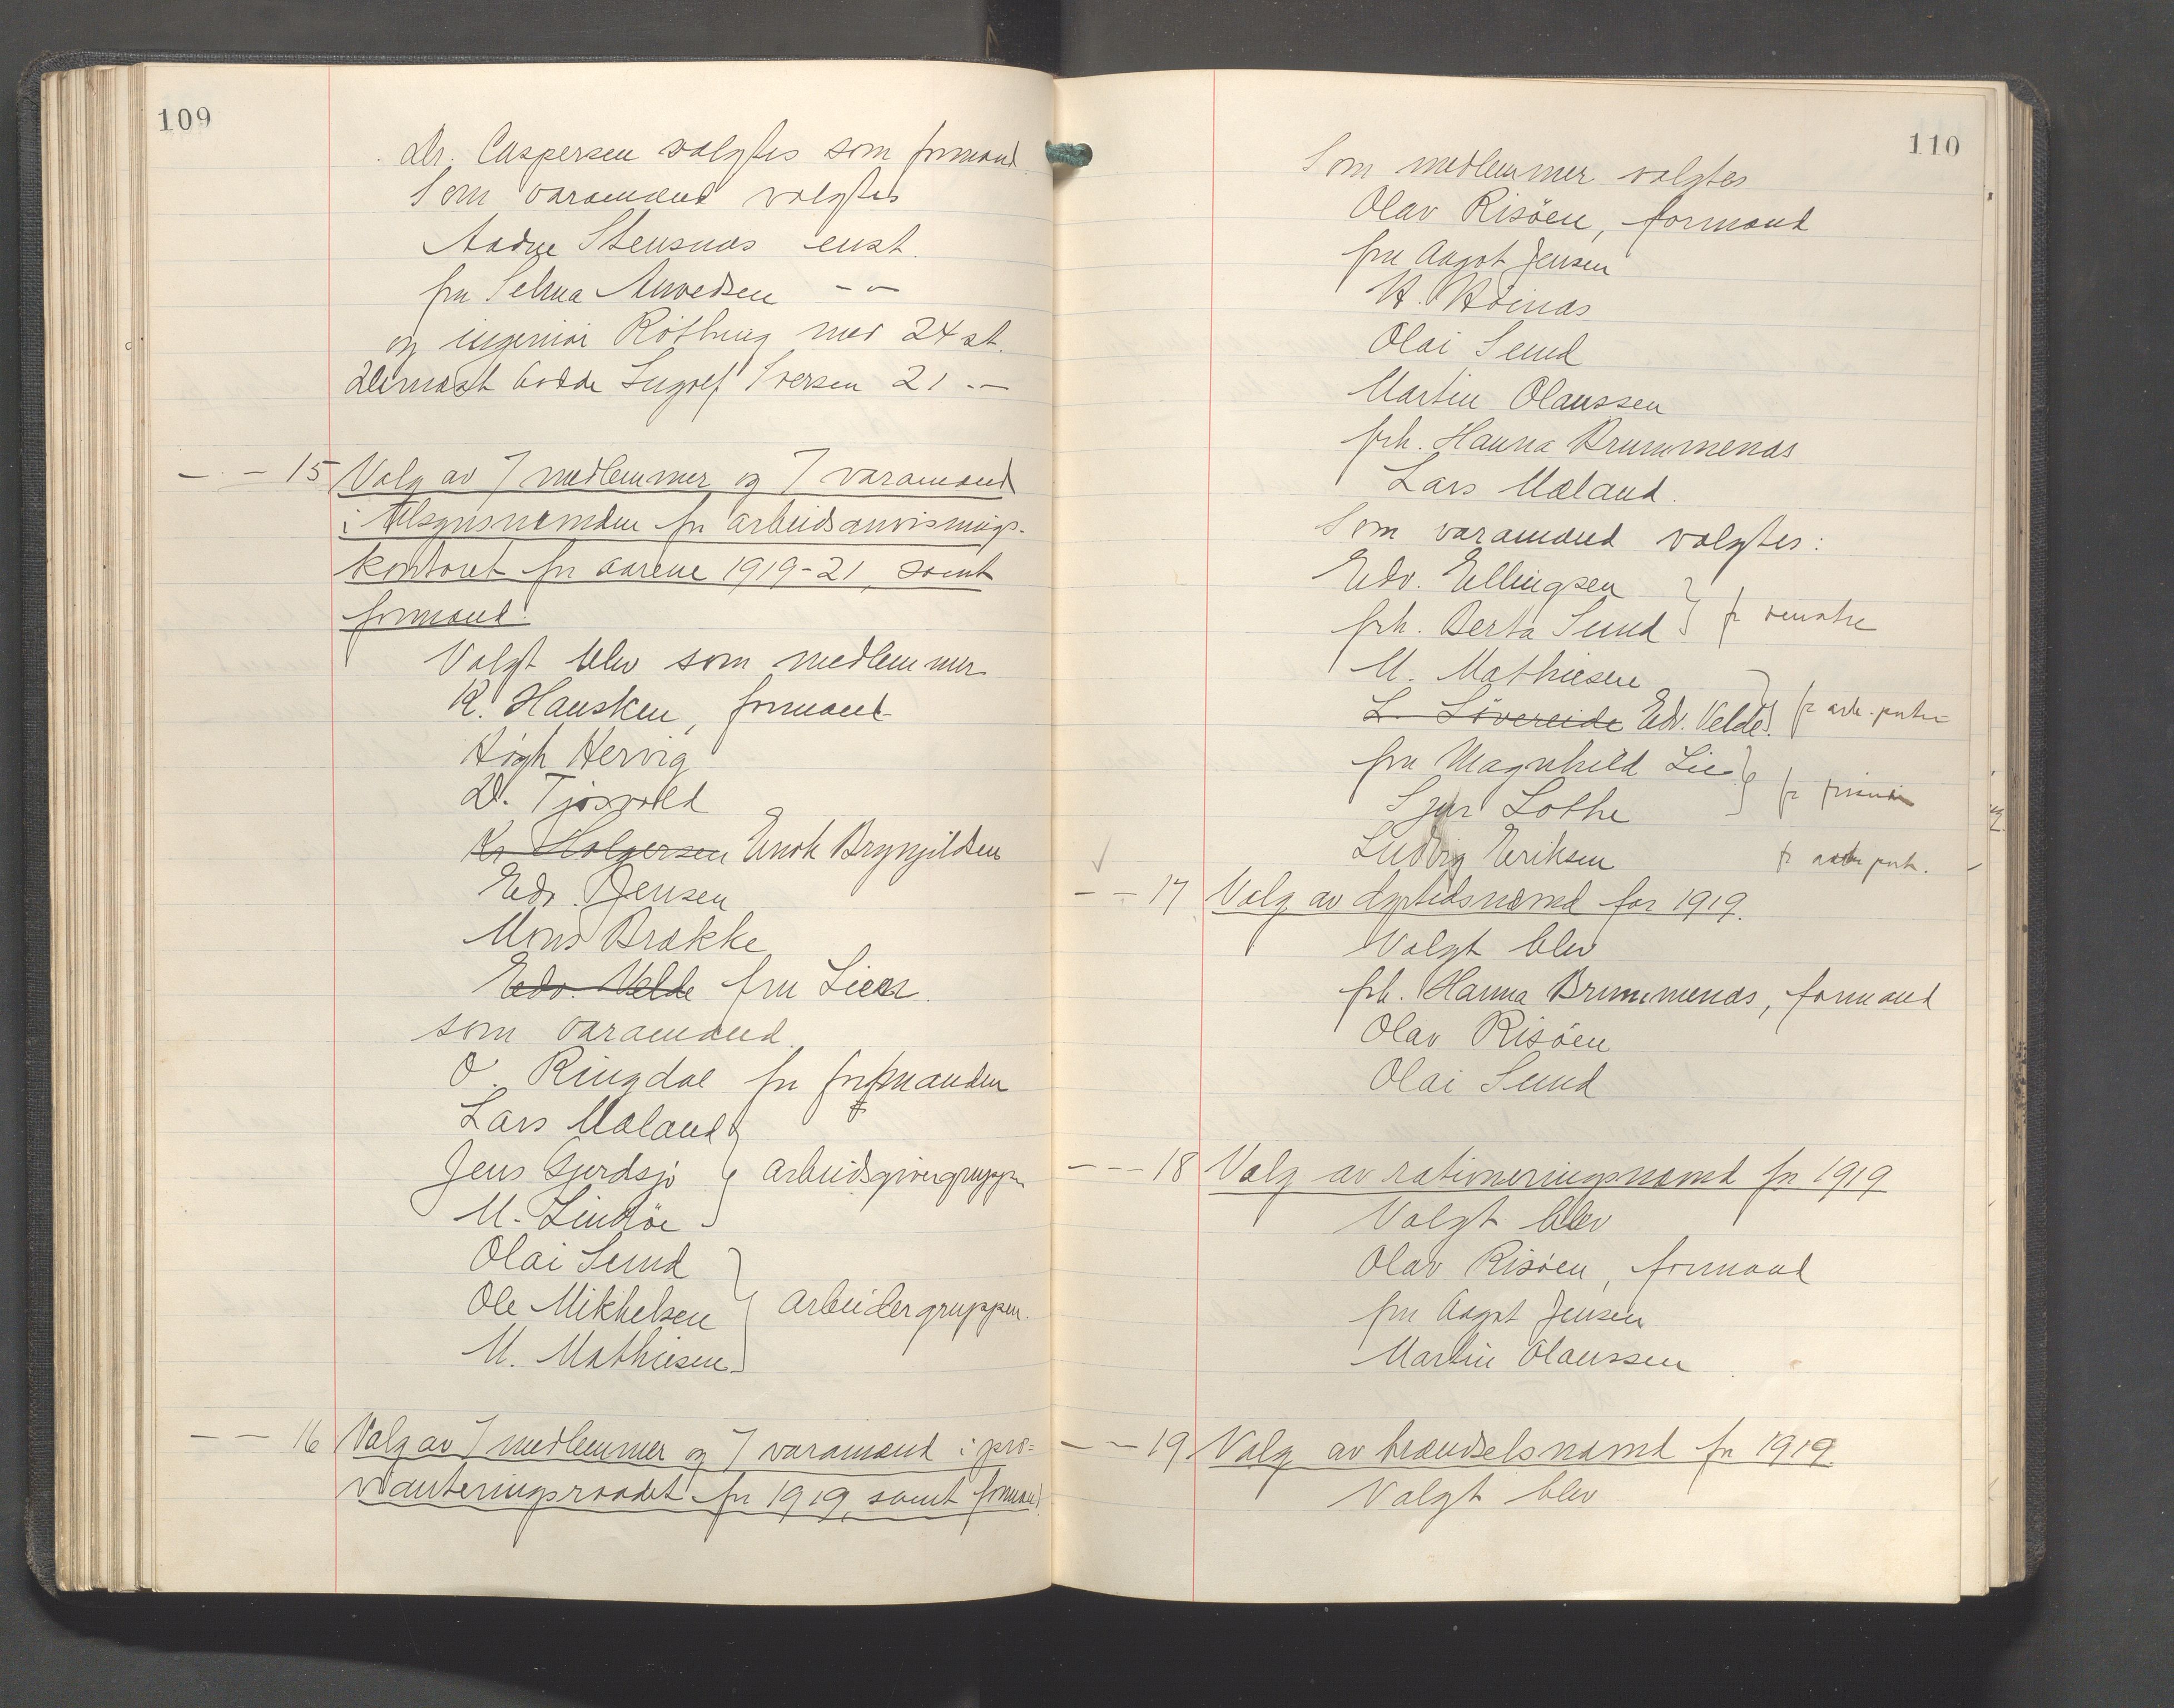 109
Dr. Caspersen valgtes som formand.
Som varamænd valgtes
Aadne Stensnæs enst.
fru Selma Arvedsen - " -
og ingeniør Røthing med 24 st.
Dernæst hadde Ingolf Iversen 21 . -
- - 15 Valg av 7 medlemmer og 7 varamænd
i tilsynsnemden for arbeidsanvisnings-
kontoret for aarene 1919-21, samt
formand.
Valgt blev som medlemmer
K. Hausken, formand
Høgh Hervig
D. Tjosvold
Kr Holgersen Enok Brynjildsen
Edv. Jensen
Mons Brække
Edv. Velde fru Liers.
som varamænd.
O. Ringdal for formanden
Lars Mæland
Jens Gjerdsjø } arbeidsgivergruppen
M. Lindøe
Olai Sund
Ole Mikkelsen } arbeidergruppen.
M. Mathiesen
- - 16 Valg av 7 medlemmer og 7 varamænd i pro=
vianteringsraadet for 1919, samt formand.
110
Som medlemmer valgtes
Olav Risøen, formand
fru Aagot Jensen
H. Høinæs
Olai Sund
Martin Olaussen
frk. Hanna Brummenæs
Lars Mæland.
Som varamænd valgtes:
Edv. Ellingsen
frk. Berta Sund } fr venstre
M. Mathiesen
L. Løvereide Edv. Velde } fr arb. partiet
fru Magnhild Lie
Sjur Lothe } fr
Ludvig Eriksen fr arb part.
- - 17 Valg av dyrtidsnemd for 1919.
Valgt blev
frk. Hanna Brummenæs, formand
Olav Risøen
Olai Sund
- - - 18 Valg av rationeringsnemd for 1919
Valgt blev
Olav Risøen, formand
fru Aagot Jensen
Martin Olaussen
- - 19 Valg av brændselsnemd for 1919.
Valgt blev